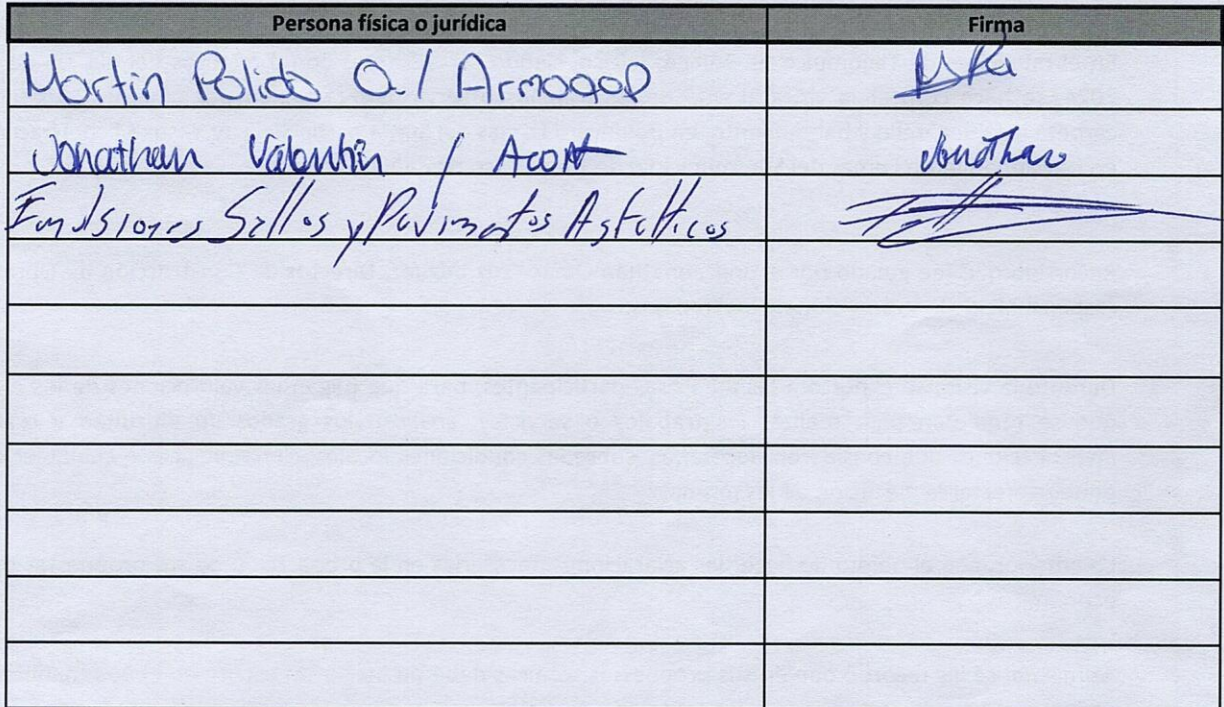 Persona física o jurídica Firma
Martin Polido O. / Armagap
Jonathan Valentin / Acont Jonathan
Emulsiones Sellos y Pavimentos Asfalticos